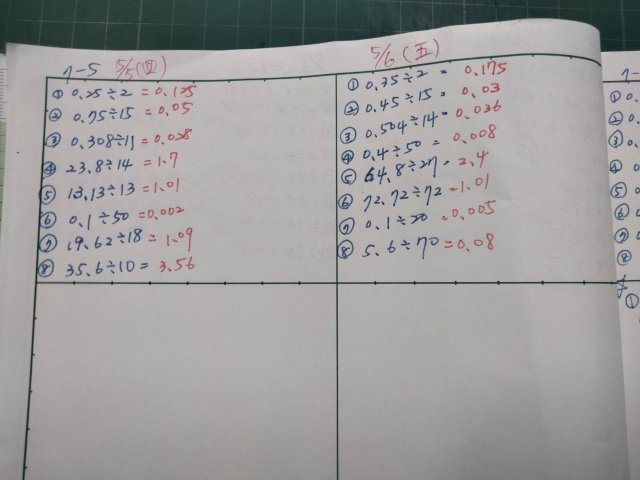 7-5 5/5(四)
① 0.25÷2 = 0.125
② 0.75÷15 = 0.05
③ 0.308÷11 = 0.028
④ 23.8÷14 = 1.7
⑤ 13.13÷13 = 1.01
⑥ 0.1÷50 = 0.002
⑦ 19.62÷18 = 1.09
⑧ 35.6÷10 = 3.56
5/6(五)
① 0.35÷2 = 0.175
② 0.45÷15 = 0.03
③ 0.504÷14 = 0.036
④ 0.4÷50 = 0.008
⑤ 64.8÷27 = 2.4
⑥ 72.72÷72 = 1.01
⑦ 0.1÷20 = 0.005
⑧ 5.6÷70 = 0.08